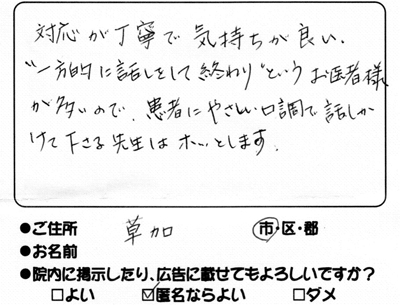 対応が丁寧で気持ちが良い、
"一方的に話しをして終わり"というお医者様
が多いので、患者にやさしい口調で話しか
けて下さる先生はホッとします。
●ご住所 草加 市・区・郡
●お名前
●院内に掲示したり、広告に載せてもよろしいですか?
□よい ☑匿名ならよい □ダメ